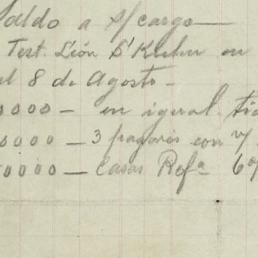 Saldo a s/cargo
Test. León S'Kuhn en
al 8 de Agosto -
0000 - en igual
0000 - 3 pagarés con v/
0000 - casas Refª 6%